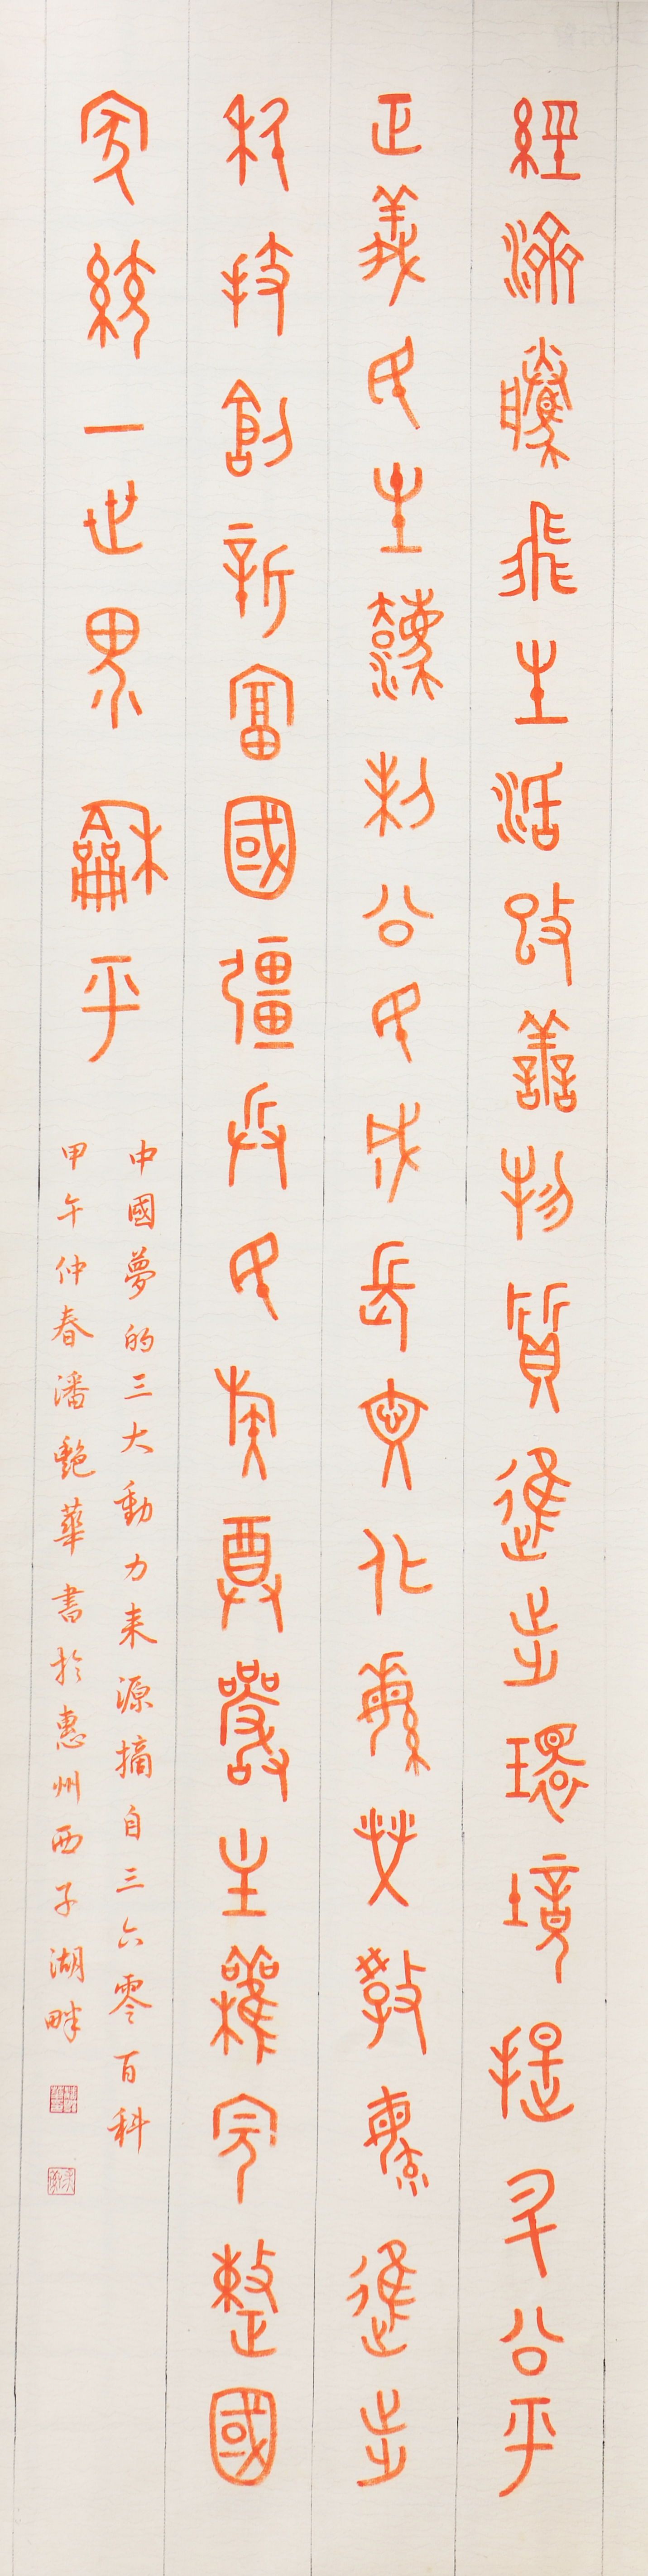 經濟騰飛生活改善物質進步環境提升公平
正義民主灋制公民成長文化繁榮教育進步
科技創新富國彊兵民族尊嚴主權完整國
家統一世界龢平
中國夢的三大動力来源摘自三六零百科
甲午仲春潘艷華書於惠州西子湖畔